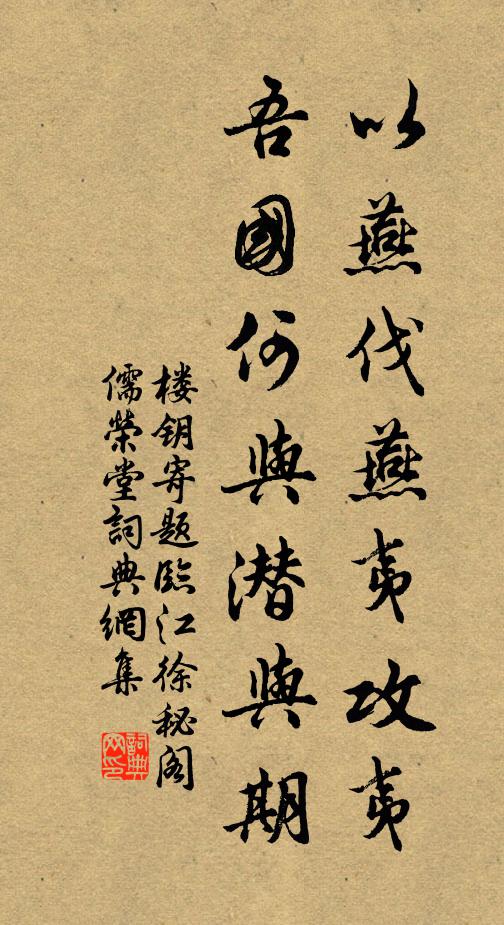 以燕伐燕夷攻夷
吾國何與潜與期
楼钥寄题臨江徐秘阁
儒榮堂詞典網集
詞典網印